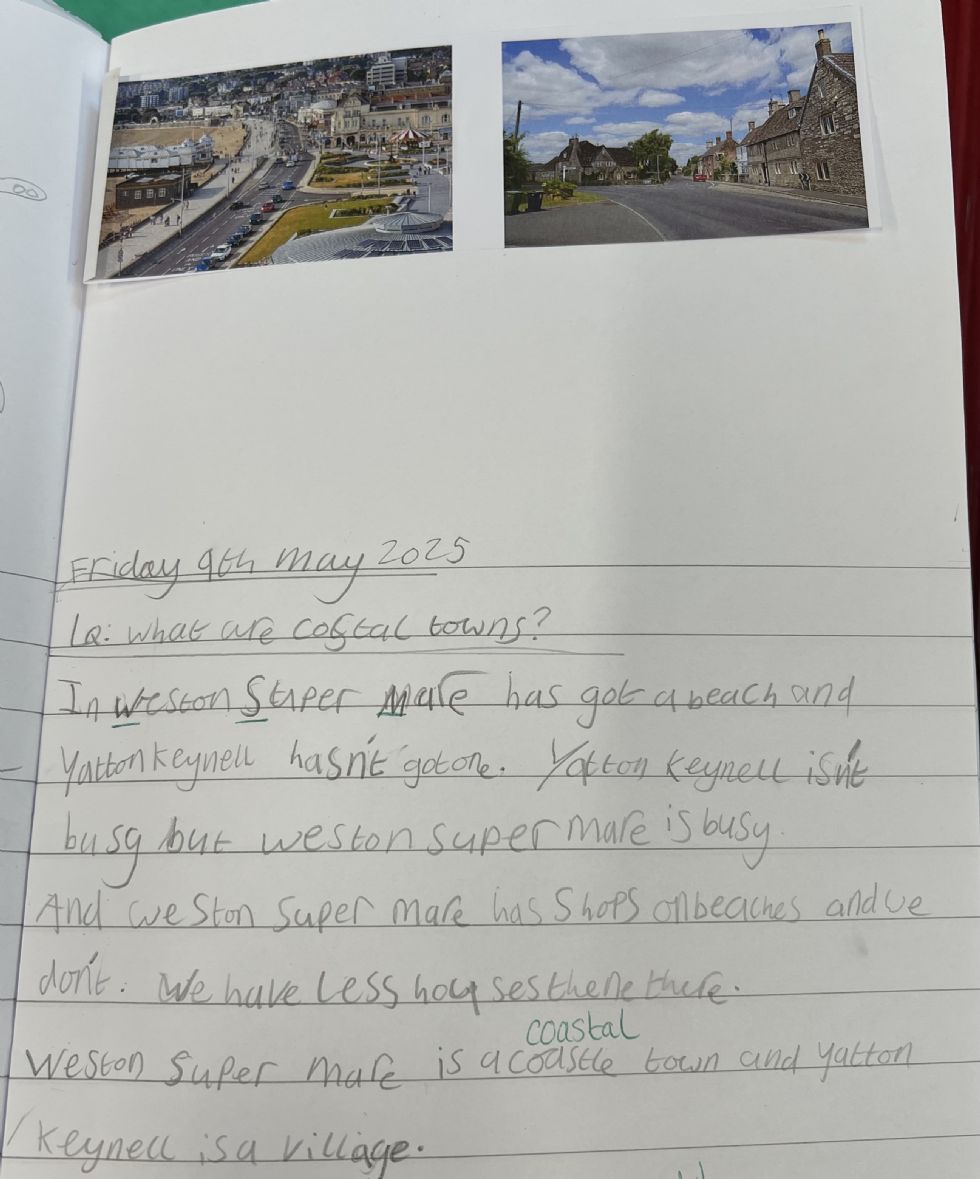 Friday 9th may 2025
LQ: what are costal towns?
In Weston Super Mare has got a beach and
Yatton keynell hasn't got one. Yatton keynell isn't
busy but weston super mare is busy.
And weston super mare has shops on beaches and we
don't. We have less houses thene there.
coastal
Weston super mare is a coastle town and yatton
keynell is a village.